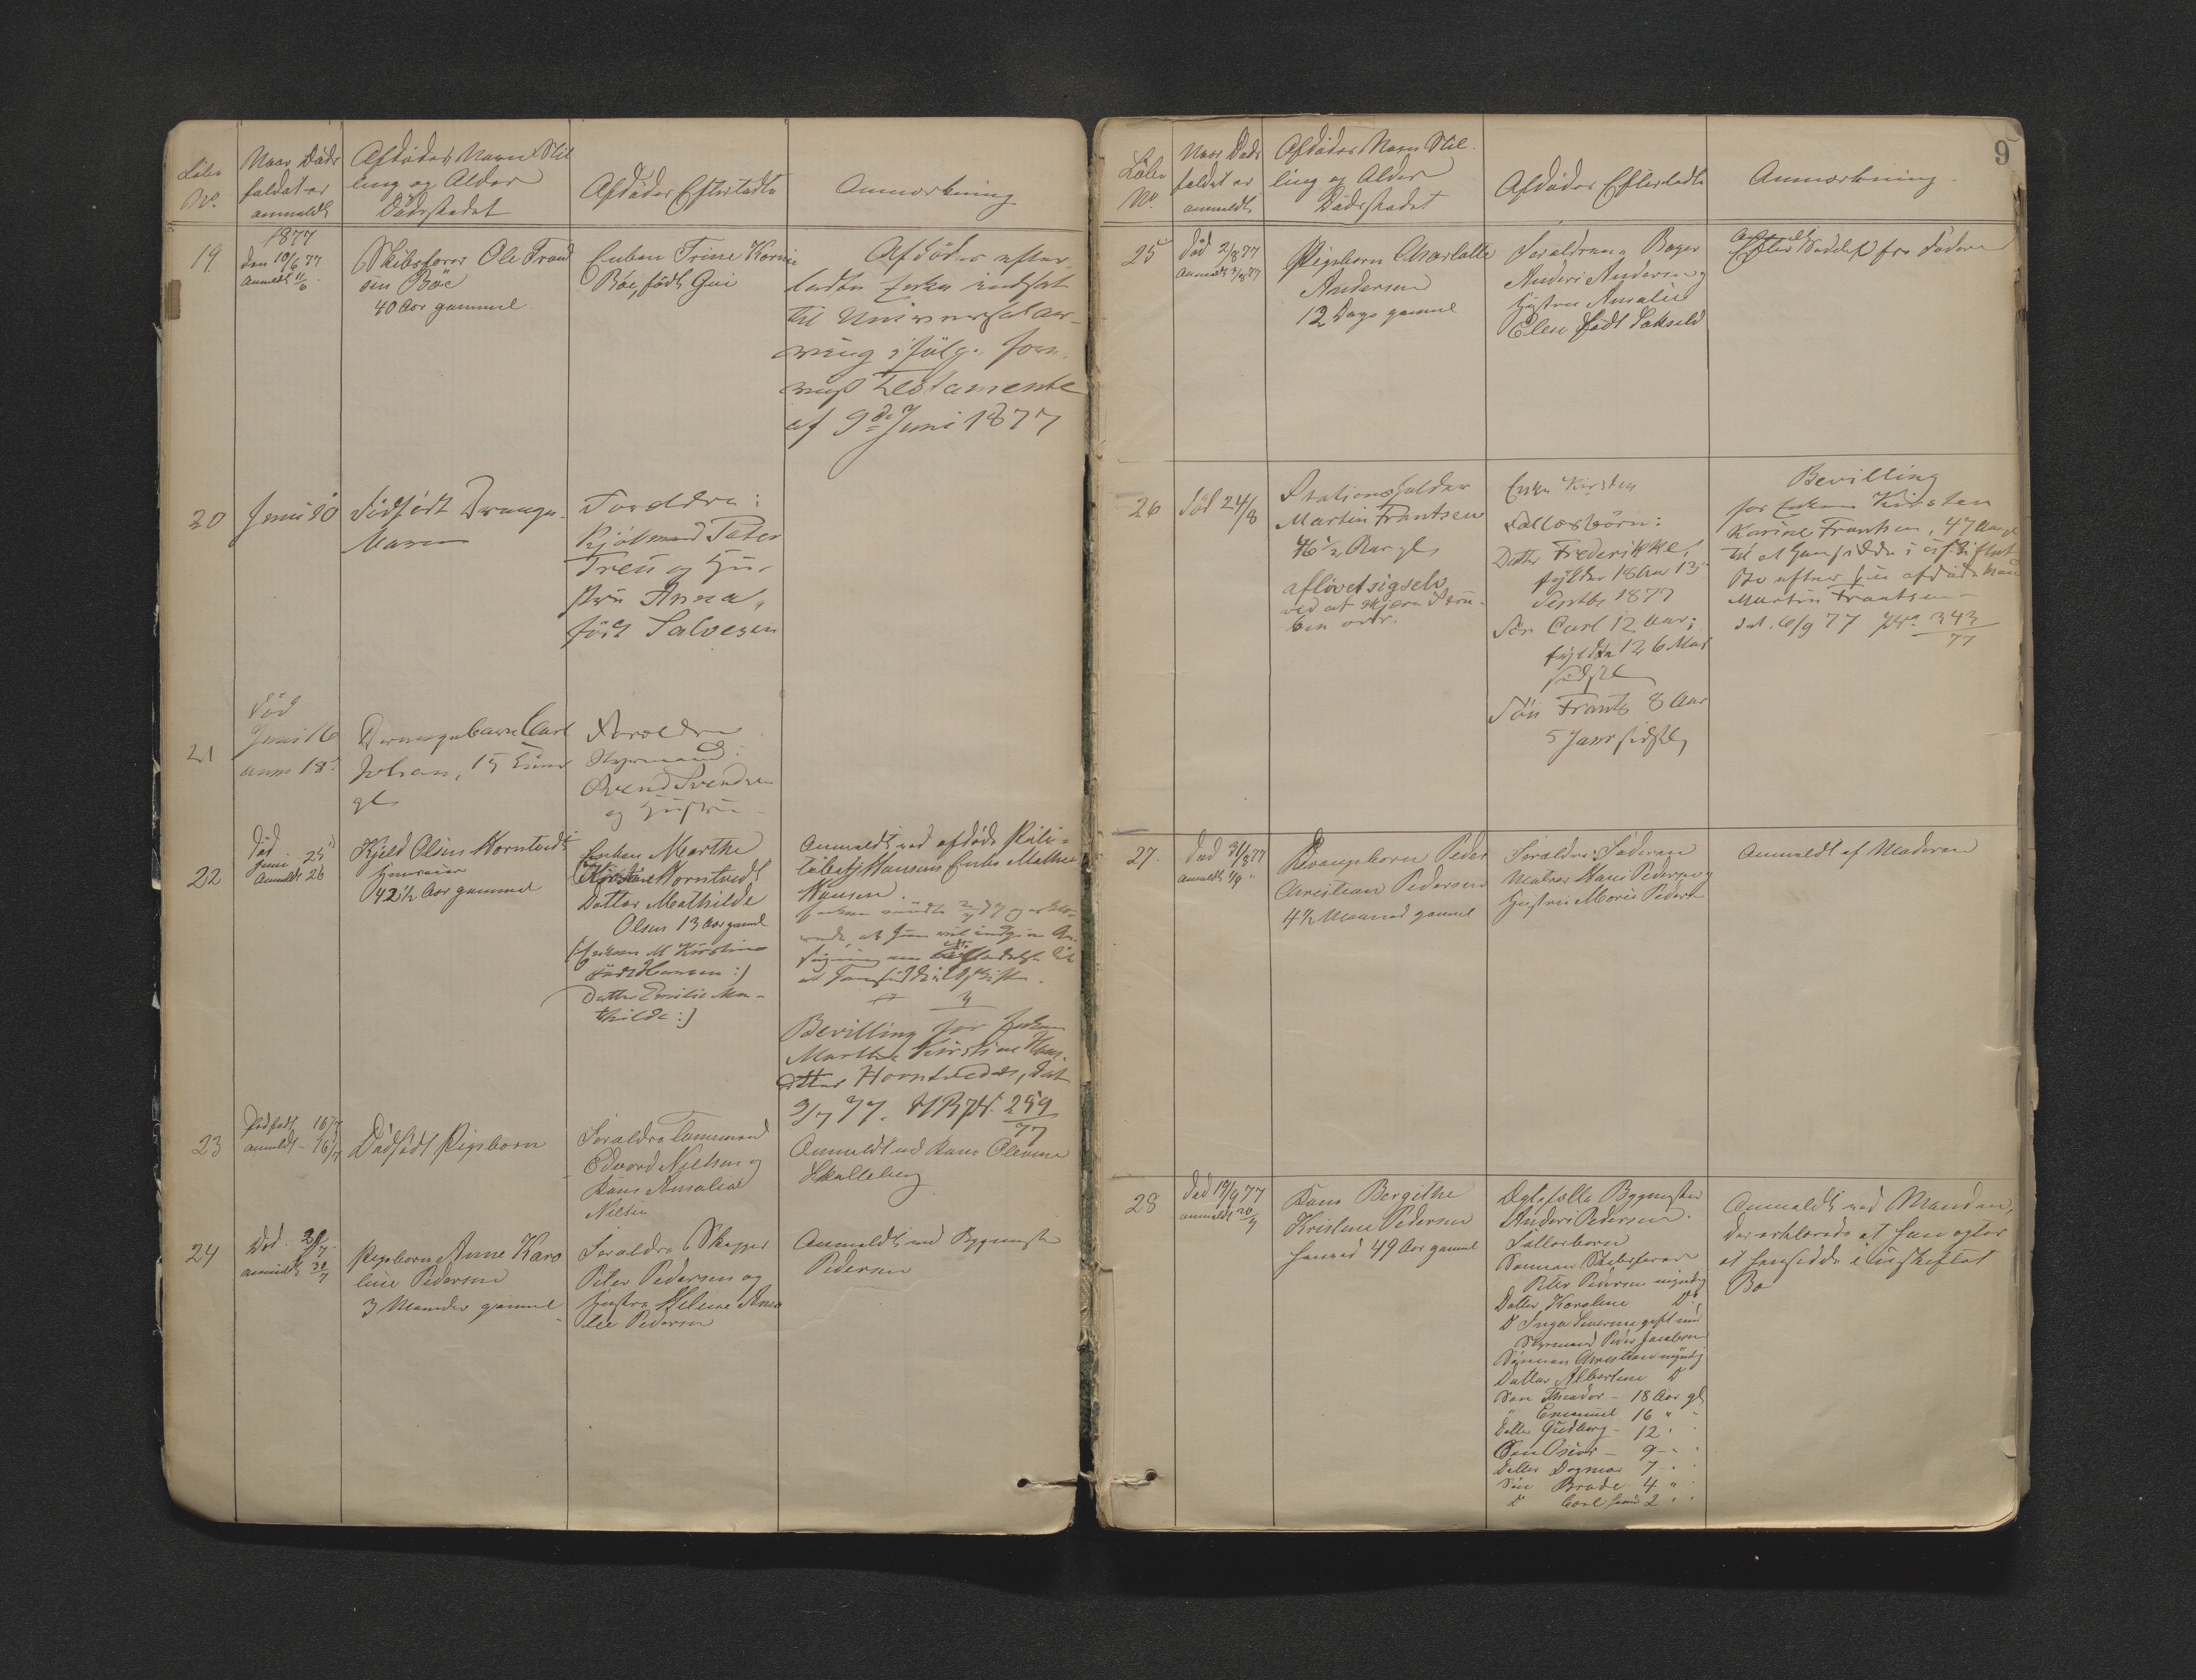 Löbe
No.
Naar Döds
faldet er
anmeldt
Afdödes Navn Stil
ling og Alder
Dödsstedet
Afdödes Efterladte
Anmærkning
19
1877
den 10/6 77
Anmeldt 11/6
Skibsförer Ole Trond
sen Böe
40 Aar gammel
Enken Trine Karine
Böe, födt
Afdödes efter-
ladte Enke indsat
til Universalar-
ving ifölge
Testamente
af 9de Juni 1877
20
Juni 10
Dödfödt Drenge-
Forældre:
Peter
og Hu-
stru Anna,
född Salvesen
21
Död
Juni 16
anm 18
Drengebarn Carl
Johan, 15
gl
Forældre
Svendsen
og Hustru
22
Död
Juni 25
Anmeldt 26
Kjeld Olsen Horntvedt
42 1/2 Aar gammel
Enken Marthe
Kirstine Horntvedt
Datter Mathilde
Olsen 13 Aar gammel
(: Enkens N. Kirstine
född Hansen :)
Datter Emilie Ma-
thilde :)
Anmeldt ved afdöde
Hansens Enke
Hansen.
Bevilling for Enken
Marthe Kirstine Hans-
datter Horntvedt, dat
3/7 77. No. 259
77
23
Dödfödt 16/7
anmeldt - 16/7
Dödfödt Pigebarn
Forældre
Edvard Nielsen og
Kone Amalie
Nielsen
Anmeldt ved Kone Olevine
Skalleberg
24
Död
anmeldt 30/7
Pigebarn Anne Karo
line Pedersen
3 Maaneder gammel
Forældre Skipper
Peter Pedersen og
Hustru Helene Ama
lie Pedersen
Anmeldt ved Bygmester
Pedersen
9
Löbe
No.
Naar Döds
faldet er
anmeldt
Afdödes Navn Stil
ling og Alder
Dödsstedet
Afdödes Efterladte
Anmærkning
25
Död 2/8 77
Anmeldt 3/8 77
Pigebarn Charlotte
Andersen
12 Dage gammel
Forældrene Bager
Anders Andersen og
Hustru Amalie
Elese födt
Efter Seddel fra Faderen
26
Död 24/8
Stationsholder
Martin Frantsen
46 1/2 Aar gl,
aflivet sig selv
ved at skjære Stru-
ben over.
Enke Kirsten
Fællesbörn:
Datter Frederikke,
fylder 18 Aar 13
Septbr 1877
Sön Carl 12 Aar;
fyldte 12 6 Mai
sidstl
Sön Frants 8 Aar
5 Janr sidstl,
Bevilling
for Enken Kirsten
Karine Frantsen, 47 Aar gl
til at hensidde i uskiftet
Bo efter sin afdöde Mand
Martin Frantsen
dat. 6/9 77 No. 343
77
27.
Död 31/8 77
Anmeldt 1/9 "
Drengebarn Peder
Christian Pedersen
4 1/2 Maaned gammel
Forældre: Faderen
Matros Hans Pedersen og
Hustru Marie Pedersen
Anmeldt af Moderen
28
Död 19/9 77
anmeldt 20/9
Kone Bergithe
Kristine Pedersen
49 Aar gammel
Ægtefælle Bygmester
Anders Pedersen.
Fællesbörn
Sönnen Skibsförer
Peter Pedersen myndig
Datter Karoline Do
Do Inga Severine gift med
Styrmand Peder Jacobsen
Sönnen Christian myndig
Datter Albertine Do
Sön Theodor - 18 Aar gl
" Emanuel 16 "
Datter Gudborg - 12 "
Sön Oscar - 9 - "
Datter Dagmar 7 - "
Sön Brede 4 "
Do Carl 2 "
Anmeldt ved Manden,
der erklærede at han agter
at hensidde i uskiftet
Bo